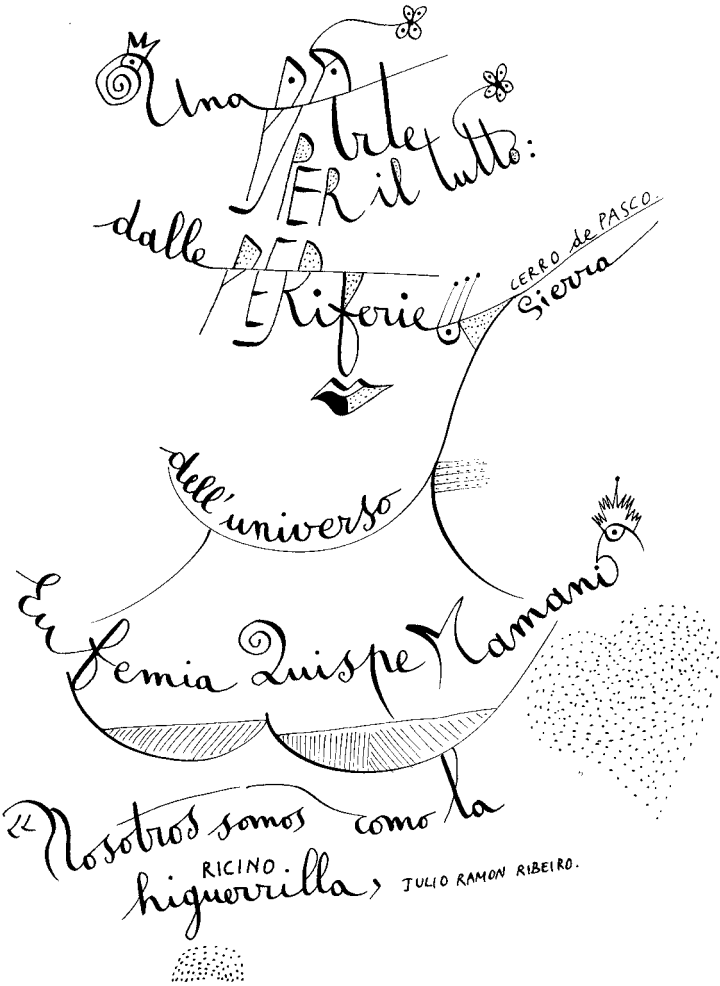 Una PArte
PER il tutto:
dalle
PERiferie
CERRO de PASCO.
Sierra
dell'universo
Eufemia Quispe Mamani
«Nosotros somos como la
RICINO.
higuerrilla, JULIO RAMON RIBEIRO.